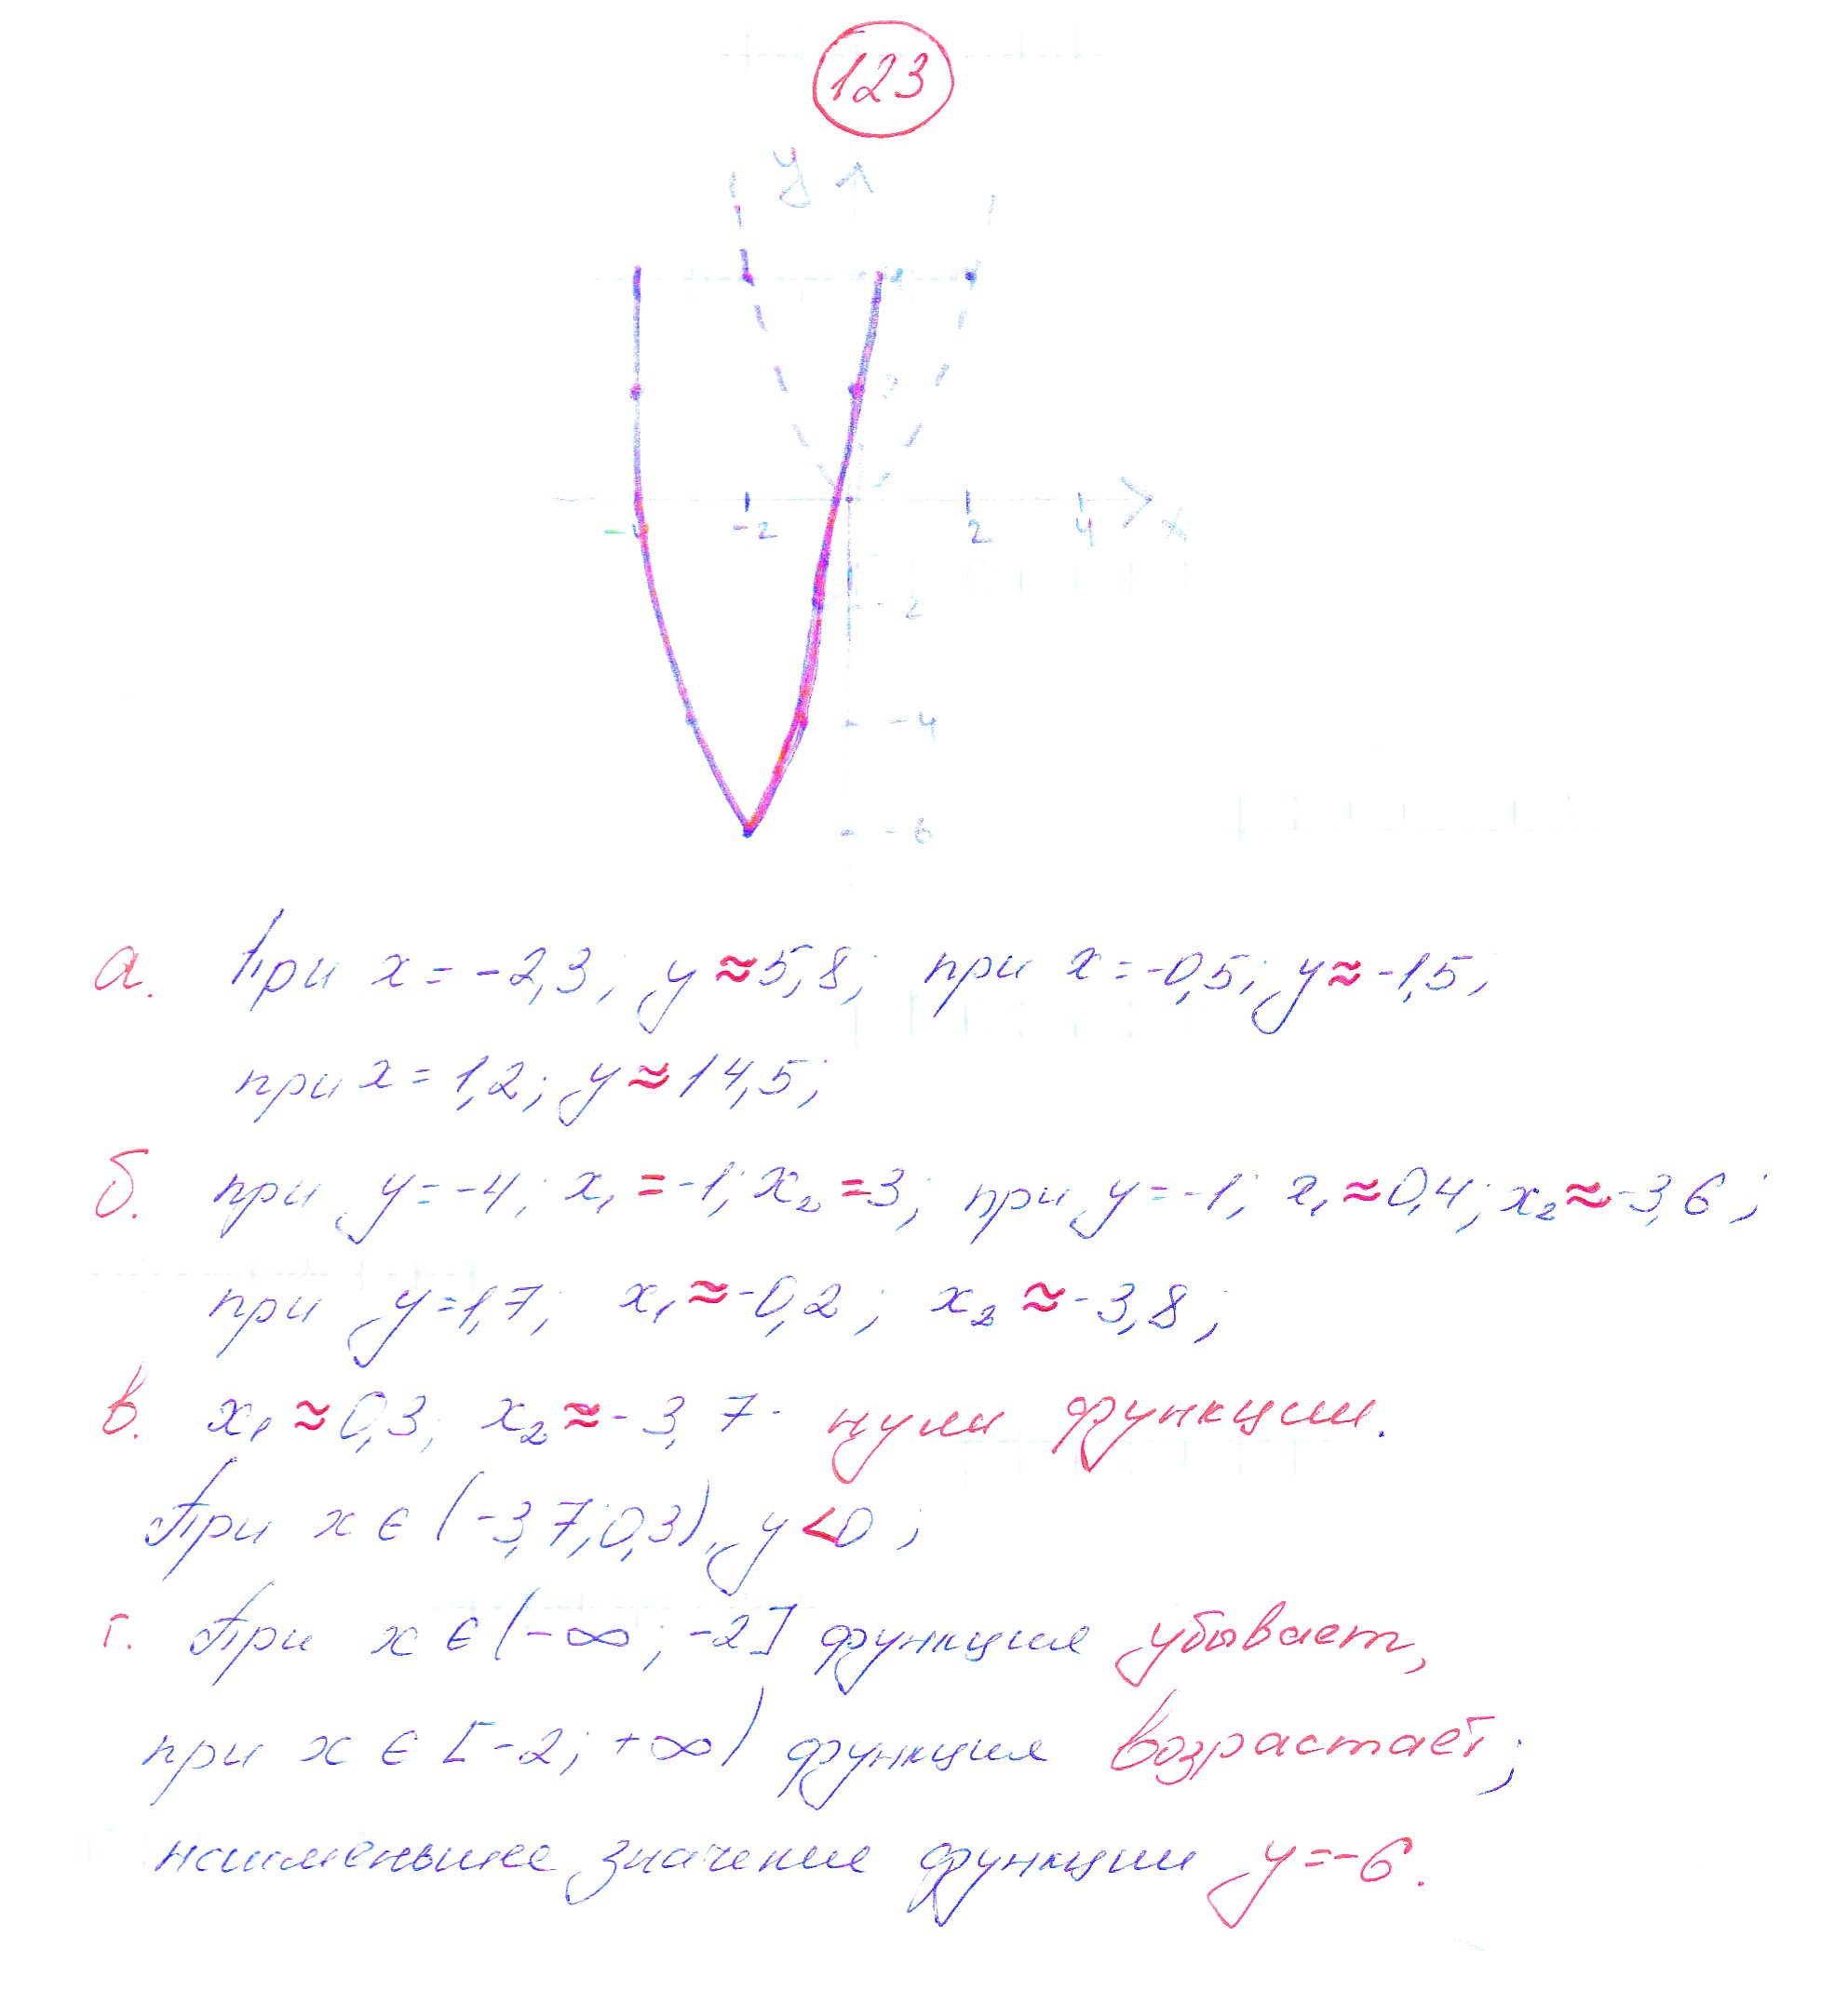 123
y
4
2
-4 -2 2 4 x
-2
-4
-6
а. При x = -2,3; y ≈ 5,8; при x = -0,5; y ≈ -1,5;
при x = 1,2; y ≈ 14,5;
б. при y = -4; x₁ = -1; x₂ = 3; при y = -1; x₁ ≈ 0,4; x₂ ≈ -3,6;
при y = 1,7; x₁ ≈ -0,2; x₂ ≈ -3,8;
в. x₁ ≈ 0,3; x₂ ≈ -3,7 - нули функции.
При x ∈ (-3,7; 0,3), y < 0;
г. При x ∈ (-∞; -2] функция убывает,
при x ∈ [-2; +∞) функция возрастает;
наименьшее значение функции y = -6.